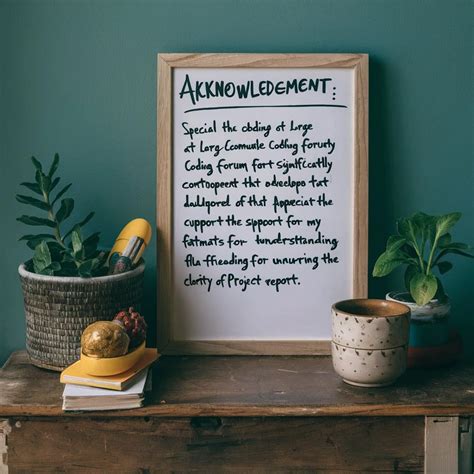 AKKNOWLEDEMENT:
Special the obding at large
at Larg Ceomuule Codiing forurty
Coding forum fort syinficatlly
contopoent that developpo tat
dauldgored of that Appieciat the
support the sippoort for my
fatmats for tunderstanding
flu ffieading for unuring the
clarity of Project report.